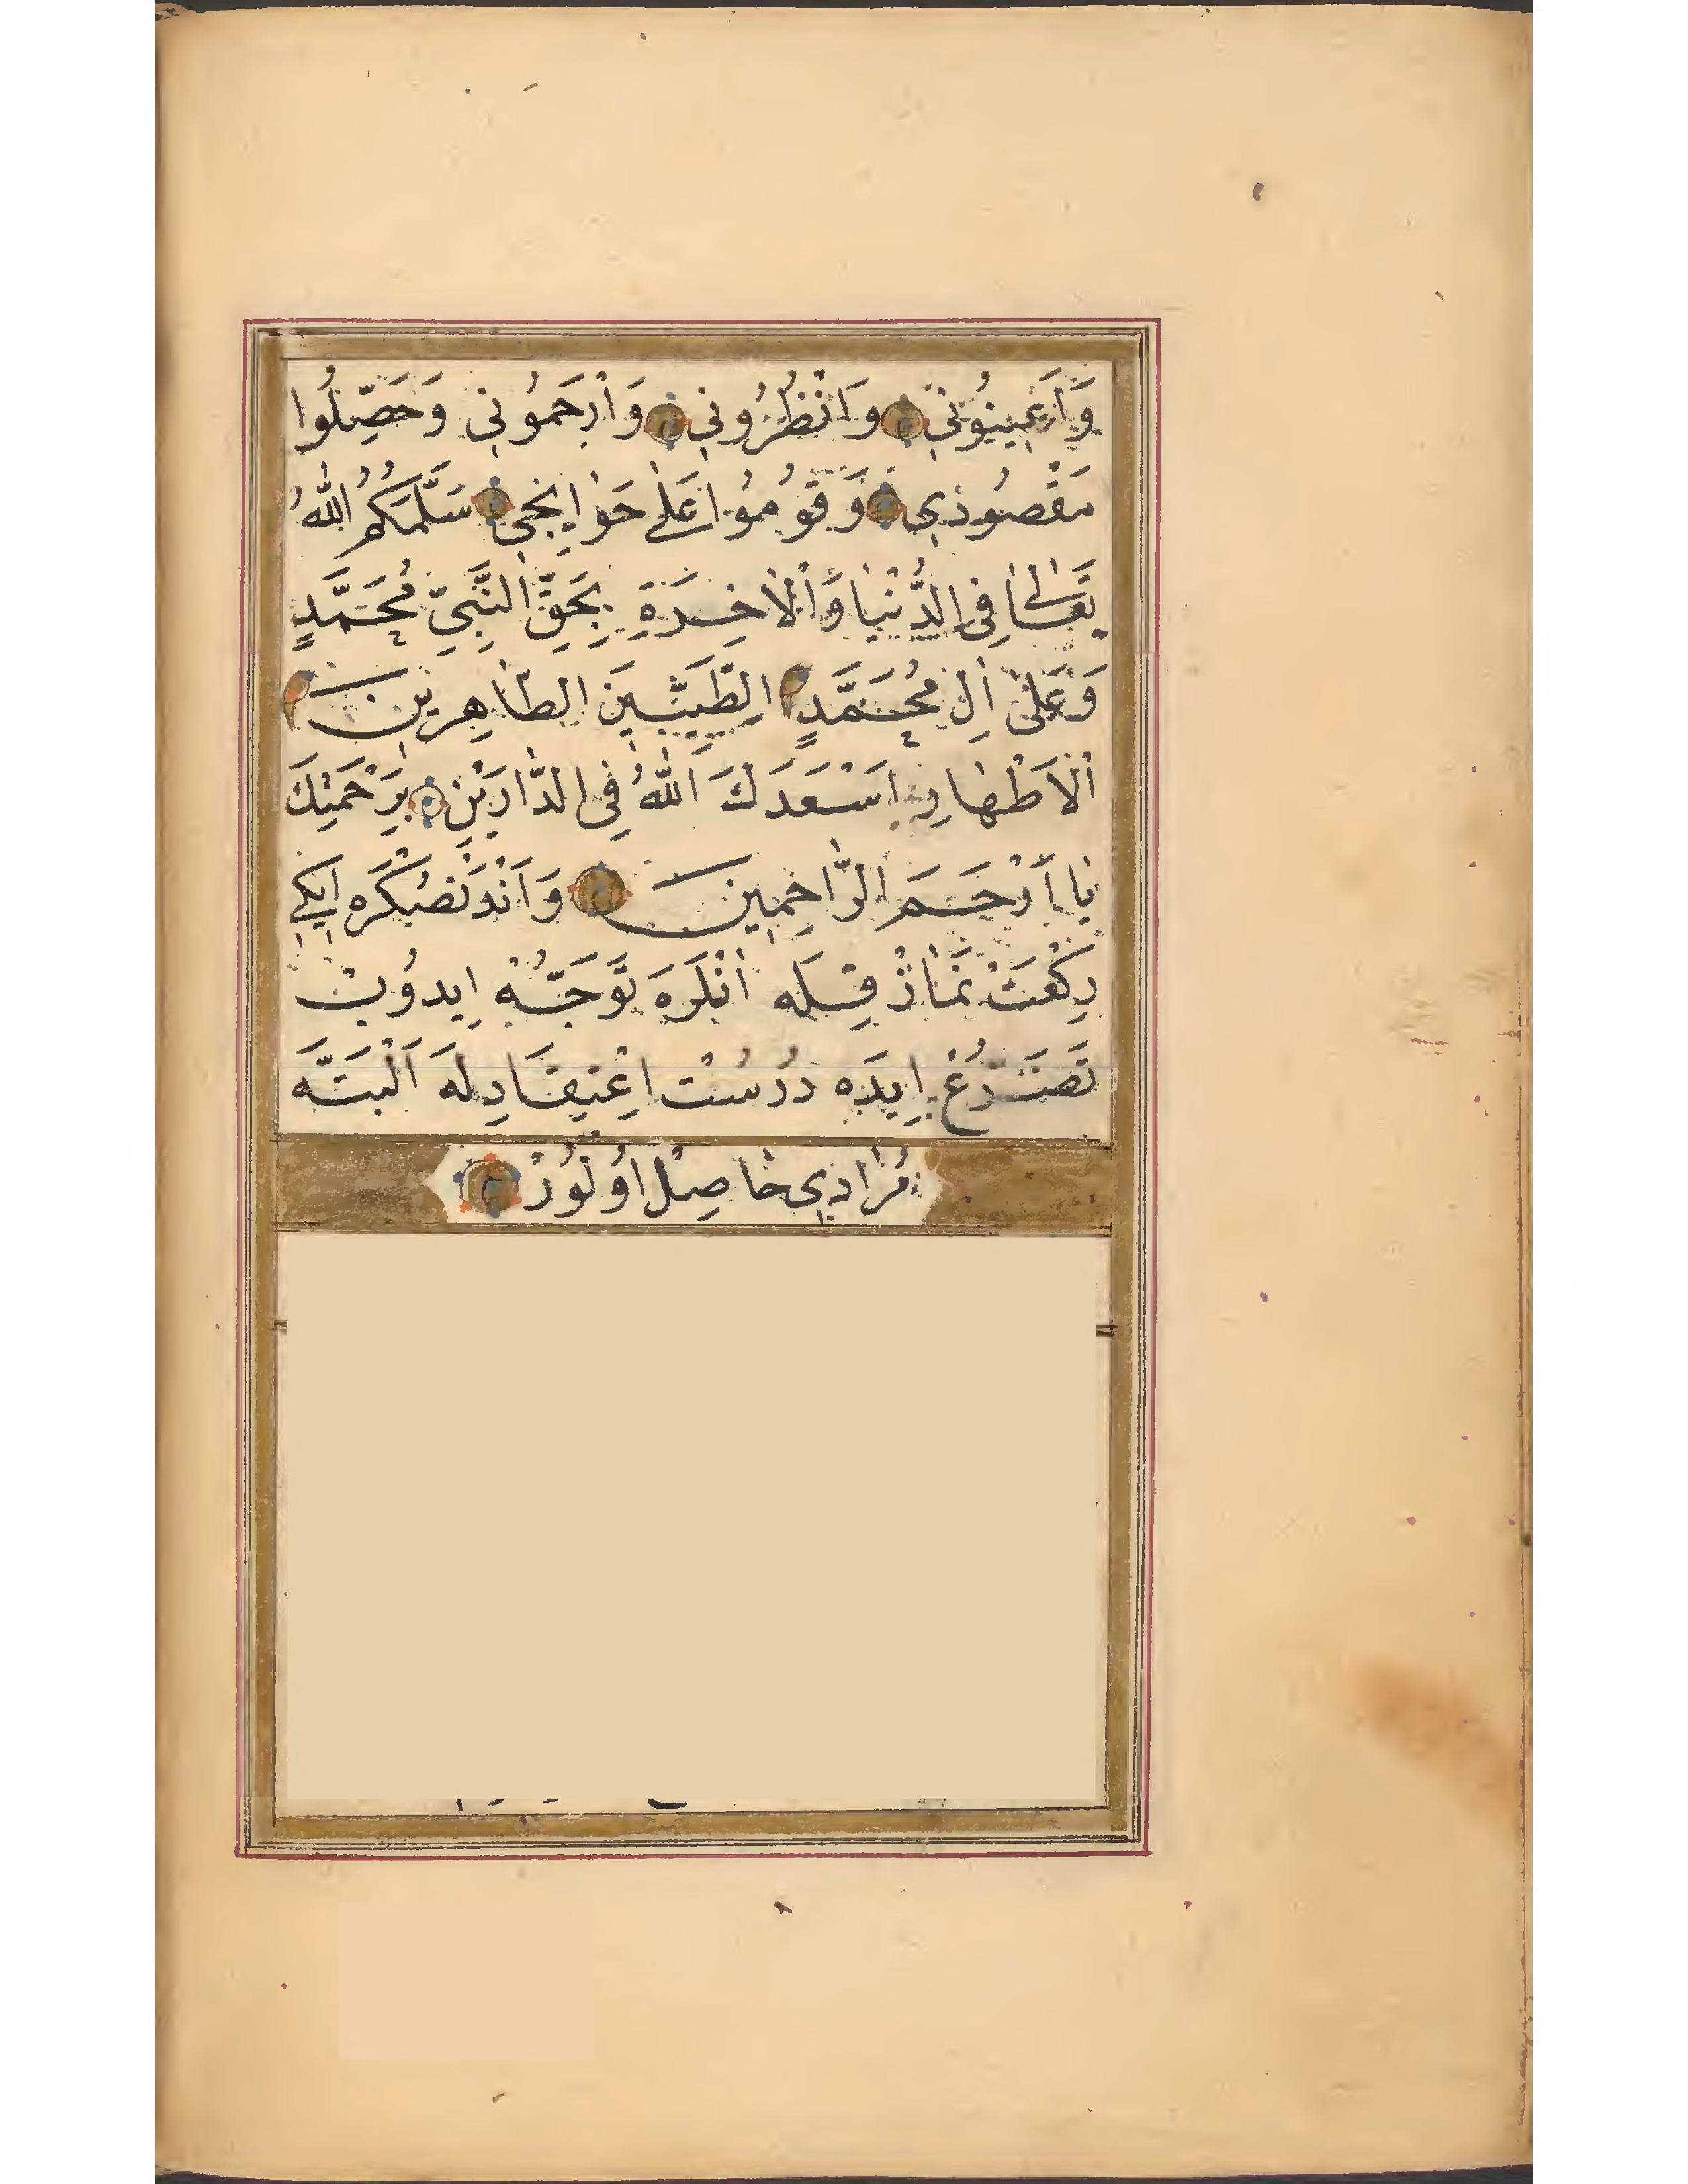 وَاَعِينُونِي وَانْظُرُونِي وَارْحَمُونِي وَحَصِّلُوا
مَقْصُودِي وَقُومُوا عَلَى حَوَايِجِي سَلَّمَكُمُ اللّٰهُ
تَعَالٰى فِي الدُّنْيَا وَالْاٰخِرَةِ بِحَقِّ النَّبِيِّ مُحَمَّدٍ
وَعَلٰى اٰلِ مُحَمَّدٍ الطَّيِّبِينَ الطَّاهِرِينَ
الْاَطْهَارِ اَسْعَدَكَ اللّٰهُ فِي الدَّارَيْنِ بِرَحْمَتِكَ
يَا اَرْحَمَ الرَّاحِمِينَ وَاَنْدَنْصُكْرَه اِيكِي
رِكْعَتْ نَمَازْ قِلَه اَنْلَرَه تَوَجُّهْ اِيدُوبْ
تَضَرُّعْ اِيدَه دُرُسْت اِعْتِقَادِلَه اَلْبَتَّه
مُرَادِي حَاصِلْ اُولُورْ